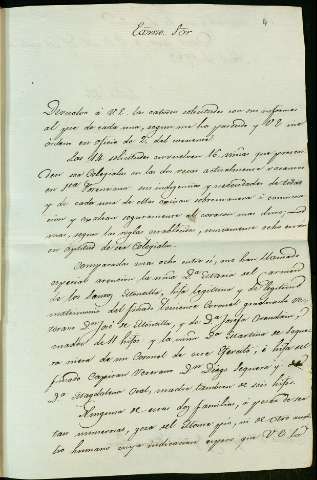 4
Exmo. Sor
Devuelvo á V.E. las catorce solicitudes con mi informe
al pie de cada una, segun me ha parecido y V.E. me
ordena en oficio de 7. del
Las 14 solicitudes envuelven 16 niñas que preten
den ser Colegialas en las dos becas actualmente vacantes
su indigencia y necesidades de todas
y de cada una de ellas
cion y excitan seguramente el corazon mas duro;
mas, segun las reglas establecidas, unicamente ocho están
en aptitud de ser Colegialas.
Comparadas esas ocho entre sí, me han llamado
especial atencion la niña Da. Maria del Carmen
de los Montilla, hija legitima y de legitimo
matrimonio del finado Teniente Coronel graduado ve
terano Dn. José de Montilla, y de Da. Josefa
madre de 11 hijos y la niña Da. Martina de Seque
ra nieta de un Coronel de este Ejercito, é hija del
finado Capitan Veterano Dn. Diego Sequera y de
Da. Magdalena Leal, madre tambien de seis hijos.
Ninguna de esas dos familias, á pesar de ser
tan numerosas, goza del Monte pio, ni de otro
lio humano cuya indicacion espero que V.E.